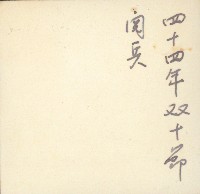 四十四年双十節
閱兵